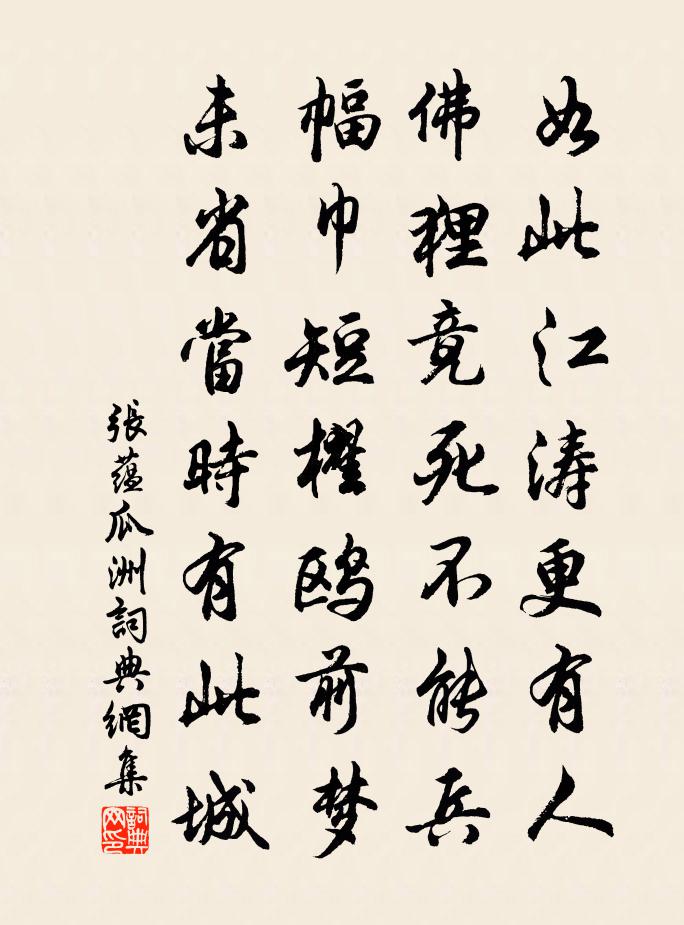 如此江涛更有人
佛裡竟死不能兵
幅巾短櫂鸥前梦
未省當時有此城
張蕴瓜洲詞典網集
詞典网印